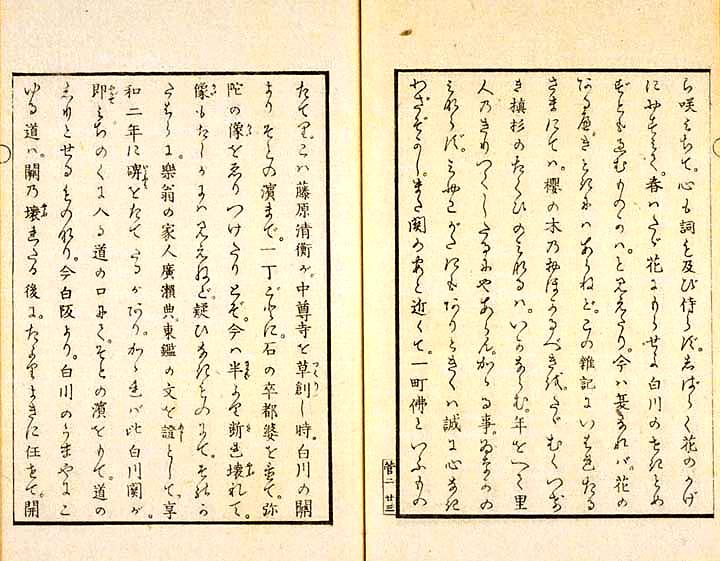 ち咲みちて。心も詞も及び侍らず。しばらく花のかげ
にやすみて。春はたゞ花にもらせよ白川のせきとめ
ずとも過むものかは。と見えたり。今は夏なれば。花の
なきはあらねど。この雜記にいはれたる
さまにては。櫻の木のおほかるべきを。たゞむくつけ
き槇杉のたぐひのみなるは。いかならむ。年をへて里
人のきりつくしたるにやあらん。かゝる事。ゐなかの
みならず。みやこがたにもありときくは誠に心なき
わざぞかし。また関のあと近くて。一町佛といふもの
管二 廿三
たてり。こは藤原清衡が。中尊寺を草創し時。白川の關
よりそとの濱まで。一丁ごとに石の卒都婆を立て。弥
陀の像をゑりつけたりとぞ。今は半より斷れ壊れて。
像もたしかには見えねど。疑ひなきものにて。それが
うちに。樂翁の家人廣瀬典。東鑑の文を證として。享
和二年に碑をたてたるがあり。かゝれば此白川関が。
即みちのくに入る道の口にて。そとの濱をもて。道の
しりとせるものなり。今白阪より。白川のうまやにこ
ゆる道は。關の壊れたる後に。たよりよきに任せて。開